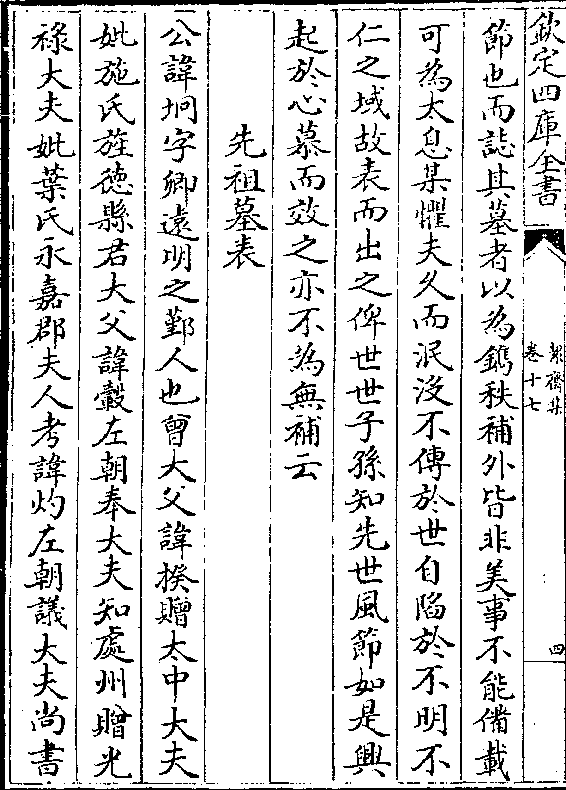 欽定四庫全書
絜齋集
卷十七
四
節也而誌其墓者以為鐫秩補外皆非美事不能備載
可為太息某懼夫久而泯沒不傳於世自陷於不明不
仁之域故表而出之俾世世子孫知先世風節如是興
起於心慕而效之亦不為無補云
先祖墓表
公諱坰字卿遠明之鄞人也曾大父諱揆贈太中大夫
妣施氏旌德縣君大父諱轂左朝奉大夫知處州贈光
祿大夫妣葉氏永嘉郡夫人考諱灼左朝議大夫尚書